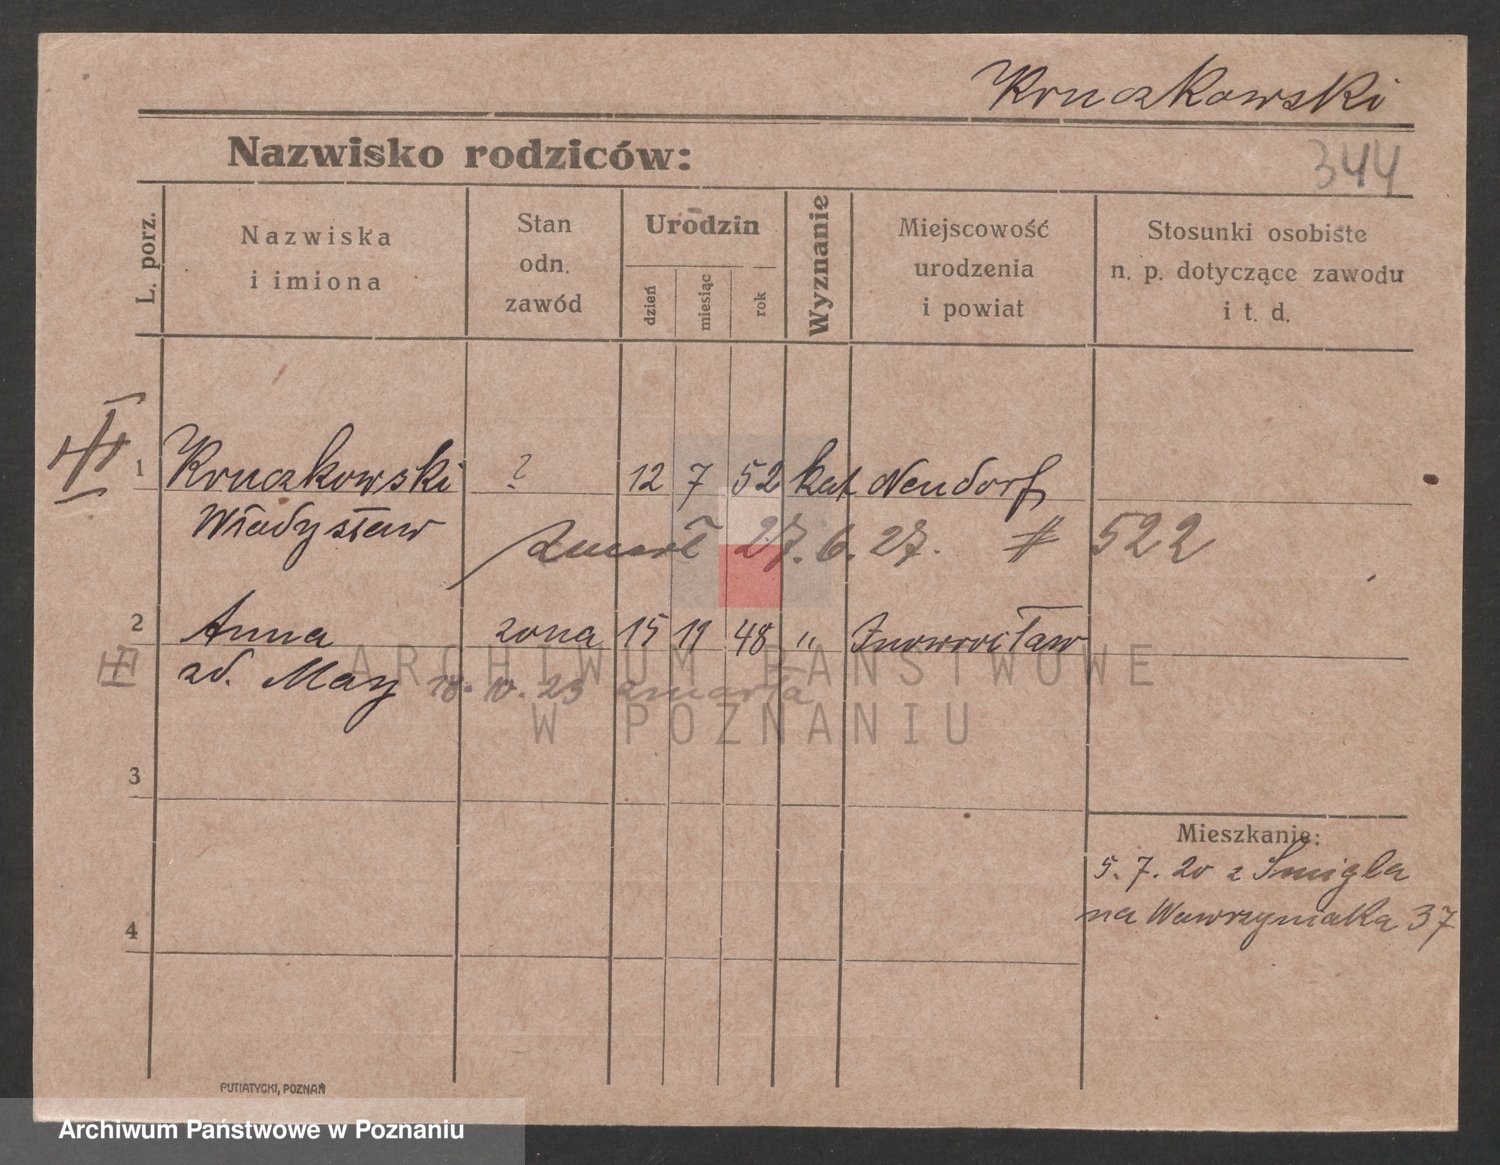 Kruczkowski
Nazwisko rodziców:
344
L. porz.
Nazwiska
i imiona
Stan
odn.
zawód
Urodzin
dzień
miesiąc
rok
Wyznanie
Miejscowość
urodzenia
i powiat
Stosunki osobiste
n. p. dotyczące zawodu
i t. d.
1 Kruczkowski ? 12 7 52 kat Neudorf
Władysław zmarł 27. 6. 27. # 522
2 Anna żona 15 11 48 " Inowrocław
zd. May 18. 10. 23 zmarła
ARCHIWUM PAŃSTWOWE
W POZNANIU
3
Mieszkanie:
5. 7. 20 z Śmigla
na Wawrzyniaka 37
4
PUTIATYCKI, POZNAŃ
Archiwum Państwowe w Poznaniu